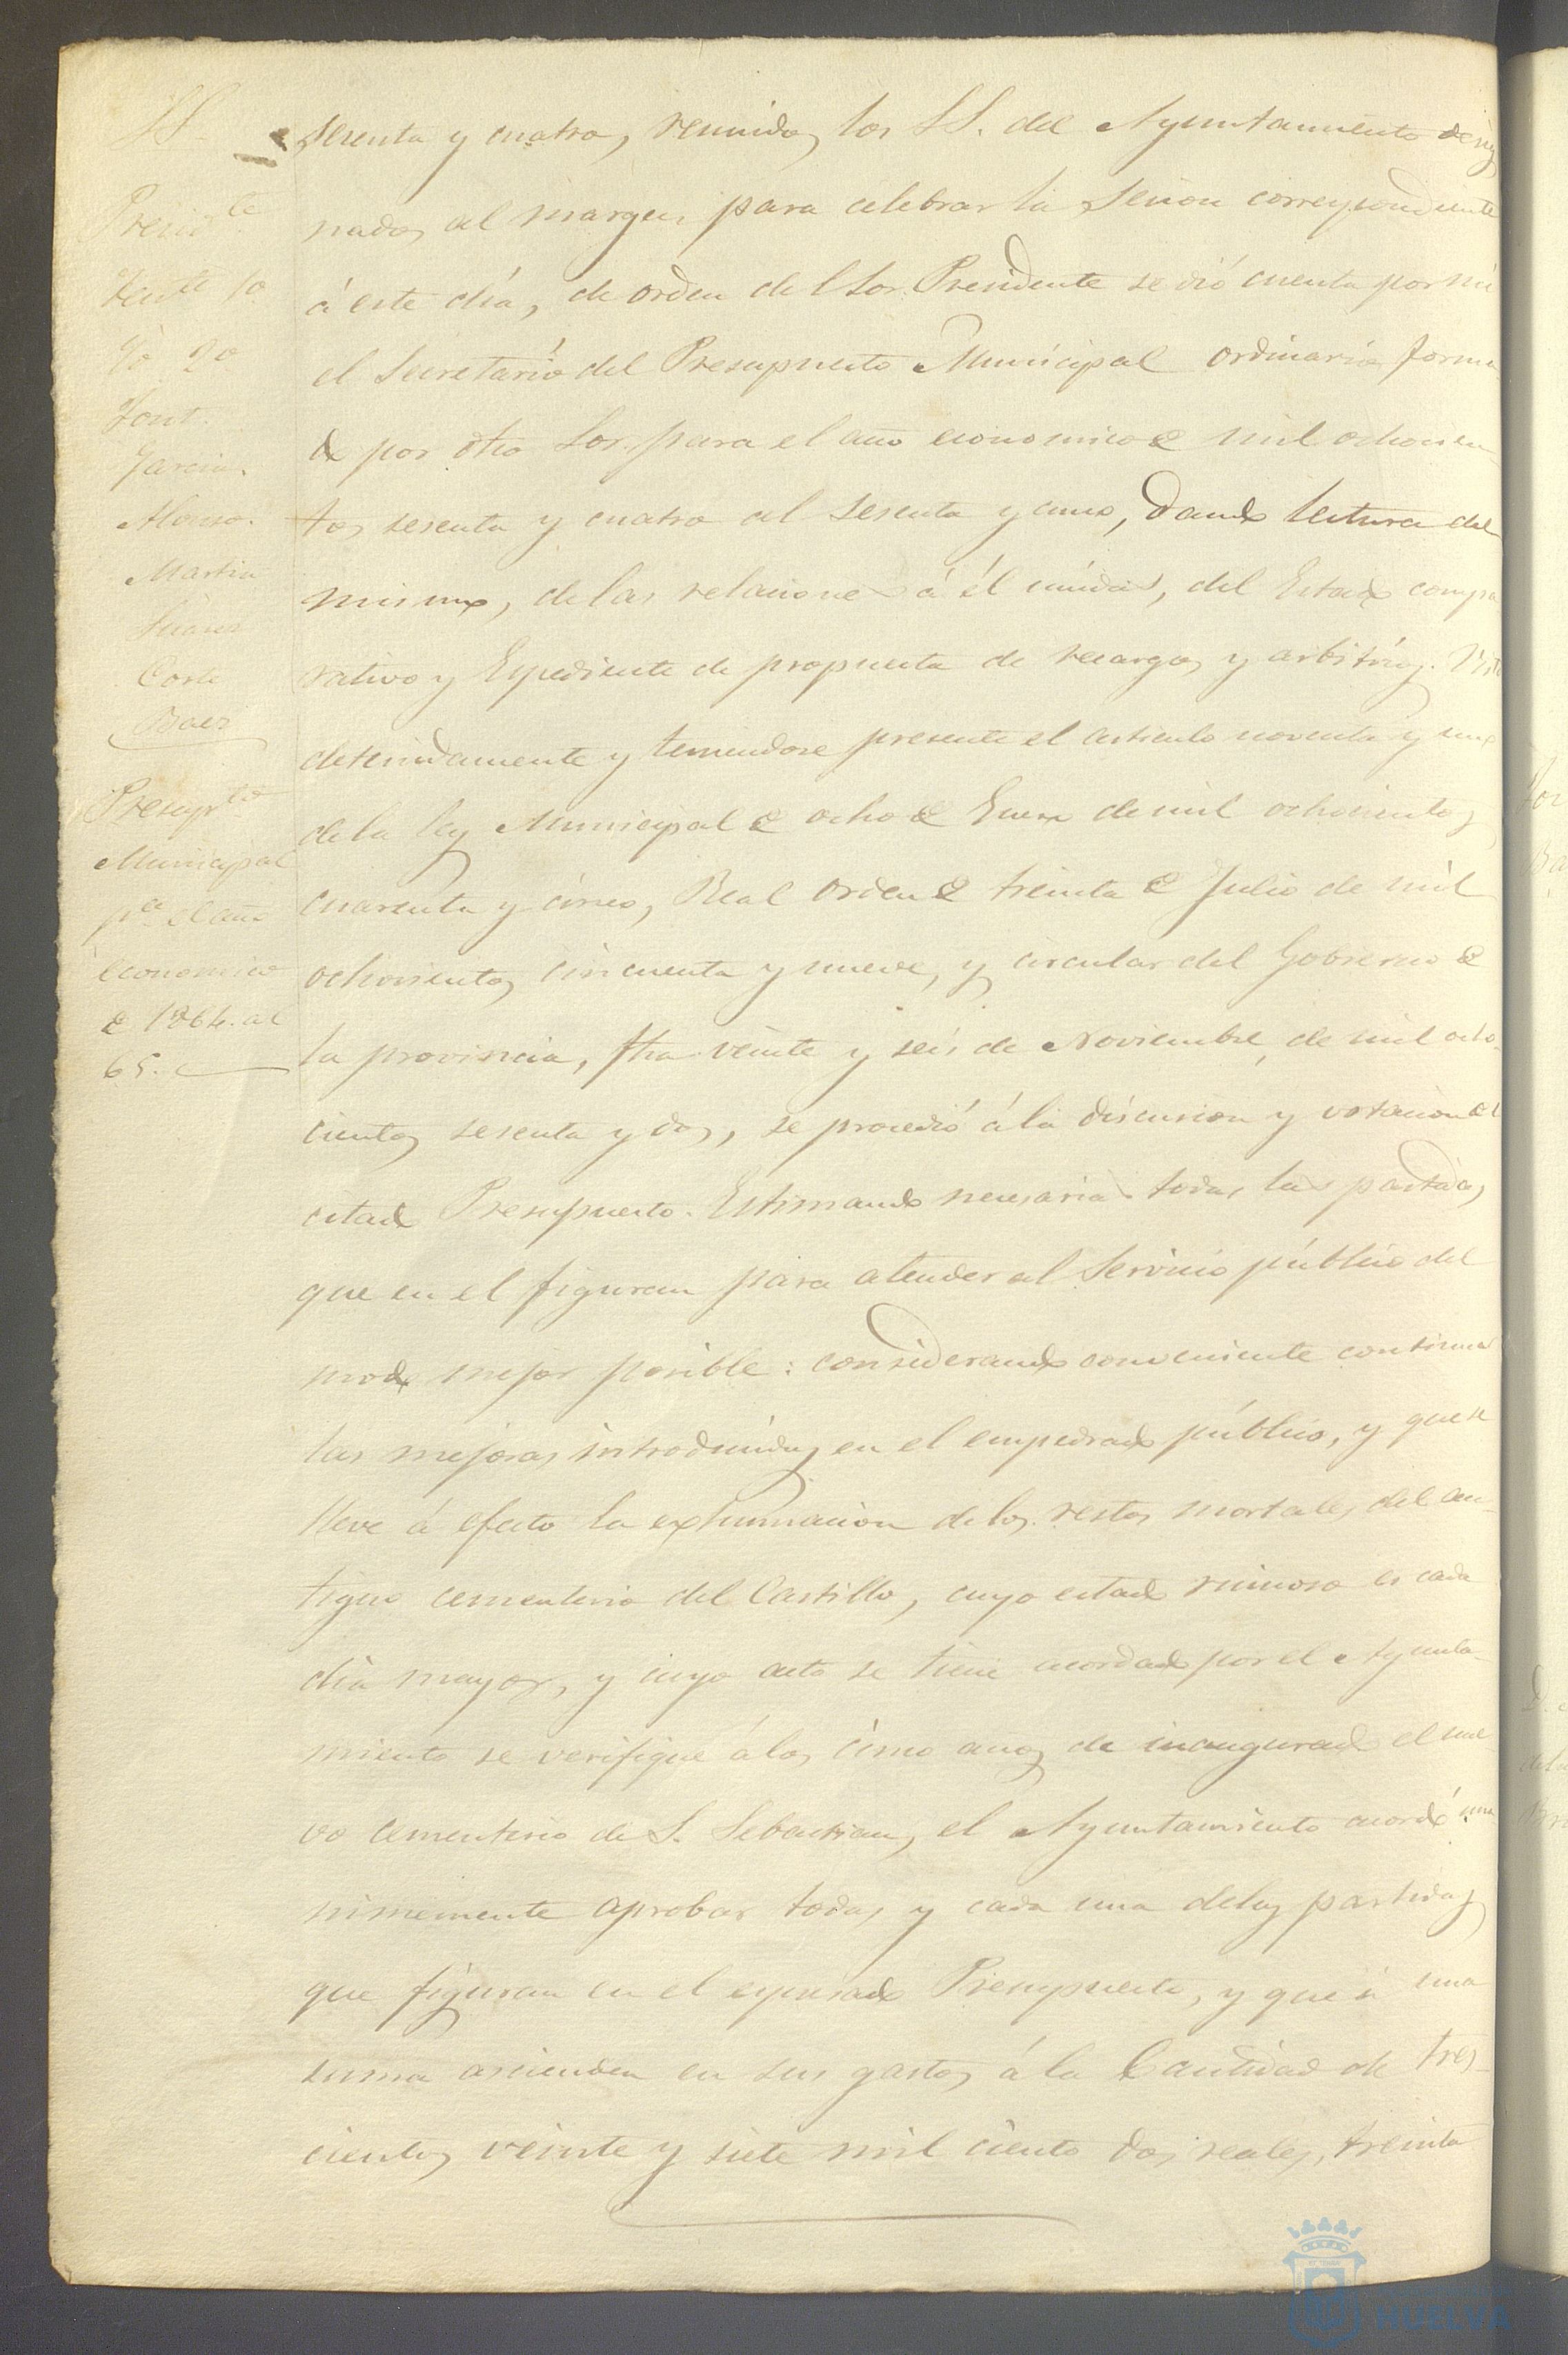 SS.
Presid.te
Tente 1o
Yd 2o
Font.
Garcia.
Alonso.
Martin
Suarez
Corte
Baez
Presup.to
Municipal
pa. el año
economico
de 1864. al
65.
sesenta y cuatro, reunidos los SS. del Ayuntamiento desig
nados al margen, para celebrar la Sesion correspondiente
á este día, de orden del Sor. Presidente se dió cuenta por mi
el Secretario del Presupuesto Municipal ordinario forma
do por dho Sor. para el año economico de mil ochocien
tos sesenta y cuatro al sesenta y cinco, dando lectura del
mismo, de las relaciones á él unidas, del Estado compa
rativo y Espediente de propuesta de recargos y arbitrios. Visto
detenidamente y teniendose presente el articulo noventa y uno
de la ley Municipal de ocho de Enero de mil ochocientos
cuarenta y cinco, Real orden de treinta de Julio de mil
ochocientos cincuenta y nueve, y circular del Gobierno de
la provincia, fha veinte y seis de Noviembre de mil ocho-
cientos sesenta y dos, se procedió á la discusion y votacion del
citado Presupuesto. Estimando necesarias todas las partidas
que en el figuran para atender al Servicio público del
modo mejor posible: considerando conveniente continuar
las mejoras introducidas en el empedrado público, y que se
lleve á efecto la exhumacion de los restos mortales del an-
tiguo cementerio del Castillo, cuyo estado ruinoso es cada
día mayor, y cuyo acto se tiene acordado por el Ayunta-
miento se verifique á los cinco años de inaugurado el nue
vo cementerio de S. Sebastian, el Ayuntamiento acordó una
nimemente aprobar todas y cada una de las partidas
que figuran en el espresado Presupuesto, y que á una
suma ascienden en sus gastos á la Cantidad de tres-
cientos veinte y siete mil ciento dos reales, treinta
HUELVA